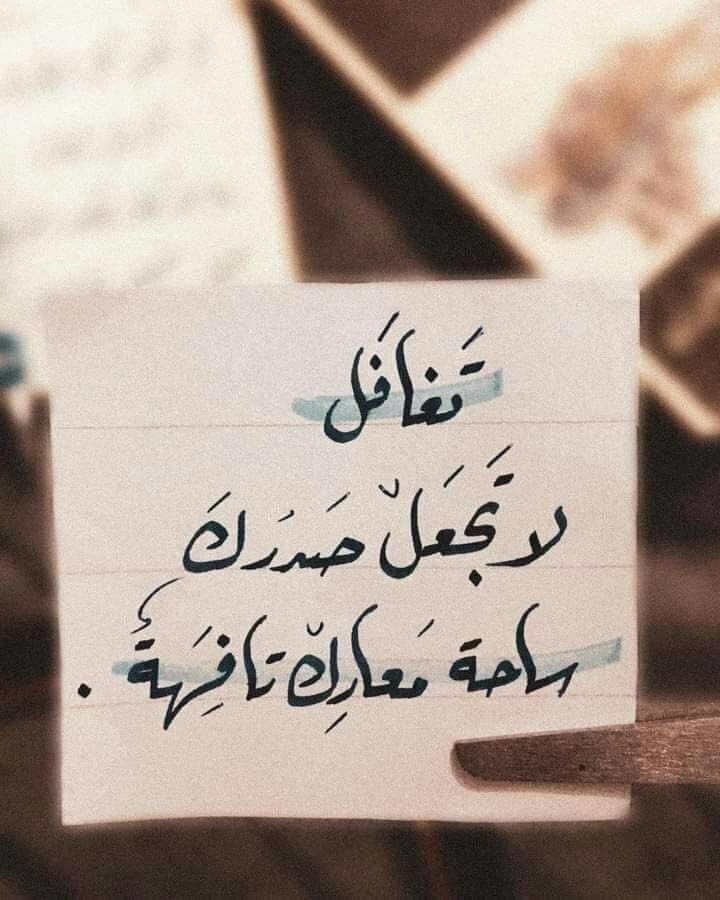 تَغافَل
لا تَجعَلْ صَدرَكَ
ساحة مَعارِكْ تافِهَةً .